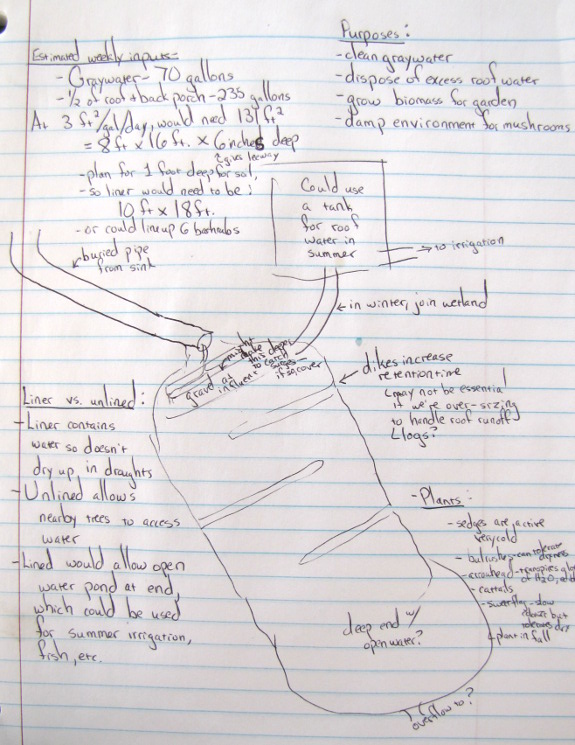 Estimated weekly inputs=
- Graywater - 70 gallons
- 1/2 of roof + back porch - 235 gallons
At 3 ft²/gal/day, would need 131 ft²
= 8 ft × 16 ft. × 6 inches deep
gives leeway
- plan for 1 foot deep for soil,
- so liner would need to be:
10 ft x 18 ft.
- or could line up 6 bathtubs
Purposes:
- clean graywater
- dispose of excess roof water
- grow biomass for garden
- damp environment for mushrooms
Could use
a tank
for roof
water in
summer
→ to irrigation
buried pipe
from sink
in winter, join wetland
might
make
this deeper
to catch
if so, cover
gravel at
influent
dikes increase
retention time
(may not be essential
if we're over-sizing
to handle roof runoff
logs?
Liner vs. unlined:
- Liner contains
water so doesn't
dry up in draughts
- Unlined allows
nearby trees to access
water
- Lined would allow open
water pond at end,
which could be used
for summer irrigation,
fish, etc.
- Plants:
- sedges are active
very cold
- bulrushes - can tolerate
dryness
- arrowhead -
of H2O,
- cattails
- sweetflag - slow
but
tolerates dry
plant in fall
deep end w/
open water?
overflow to?